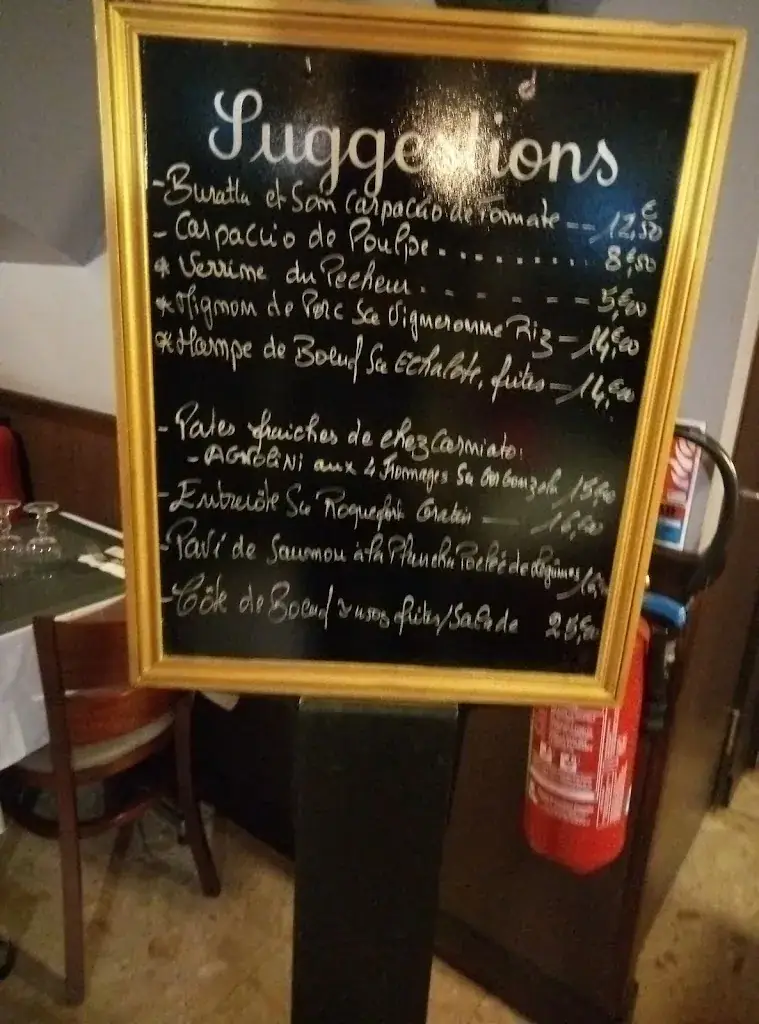 Suggestions
- Buratta et Son Carpaccio de Tomate -- 12,€50
- Carpaccio de Poulpe ......... 8,€50
* Verrine du Pecheur. - - - - -- 5,€00
* Mignon de Porc Sce Vigneronne Riz - 14,€00
* Hampe de Boeuf Sce Echalote, frites - 14,€00
- Pates fraiches de chez Carniato:
- AGNOLINI aux 4 Fromages Sce Gorgonzola 15,€00
- Entrecôte Sce Roquefort Gratin — 16,€00
- Pavé de Saumon à la Plancha Poelée de légumes
- Côte de Boeuf frites/Salade 25,€00